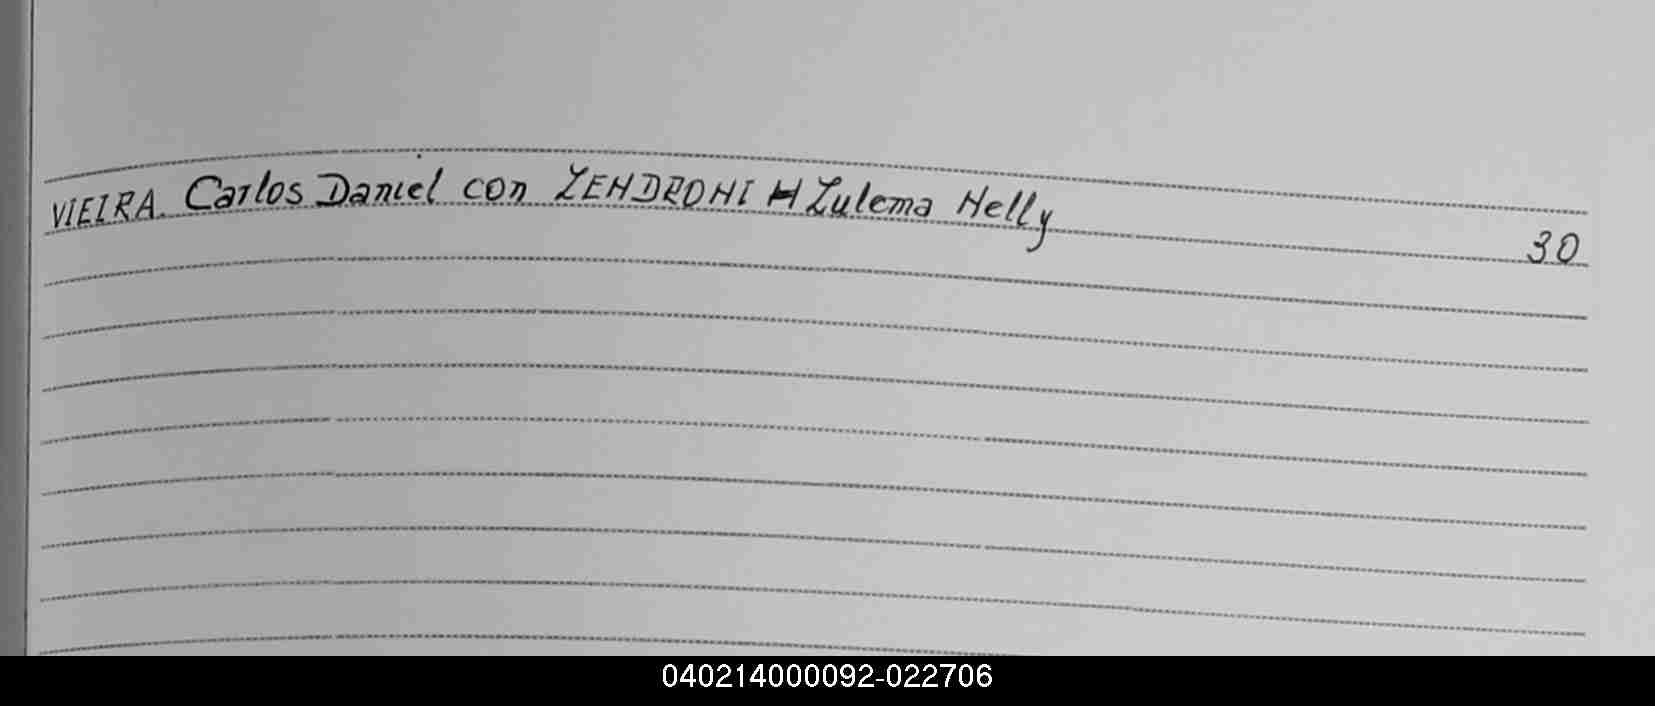 VIEIRA. Carlos Daniel con ZENDRONI Zulema Nelly
30
040214000092-022706